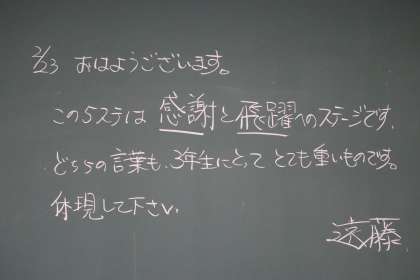 2/23 おはようございます。
この5ステは 感謝と飛躍へのステージです。
どちらの言葉も、3年生にとって とても重いものです。
体現して下さい。
遠藤